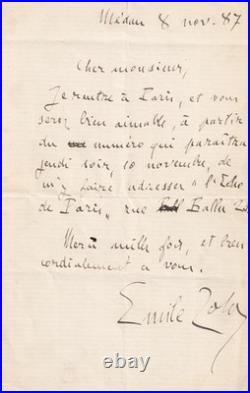 Médan 8 nov. 87
Cher monsieur,
Je rentre à Paris, et vous
serez bien aimable, à partir
du numéro qui paraîtra
jeudi soir, 10 novembre, de
m'y faire adresser "l'Echo
de Paris", rue Ballu
Merci mille fois, et bien
cordialement à vous.
Emile Zola